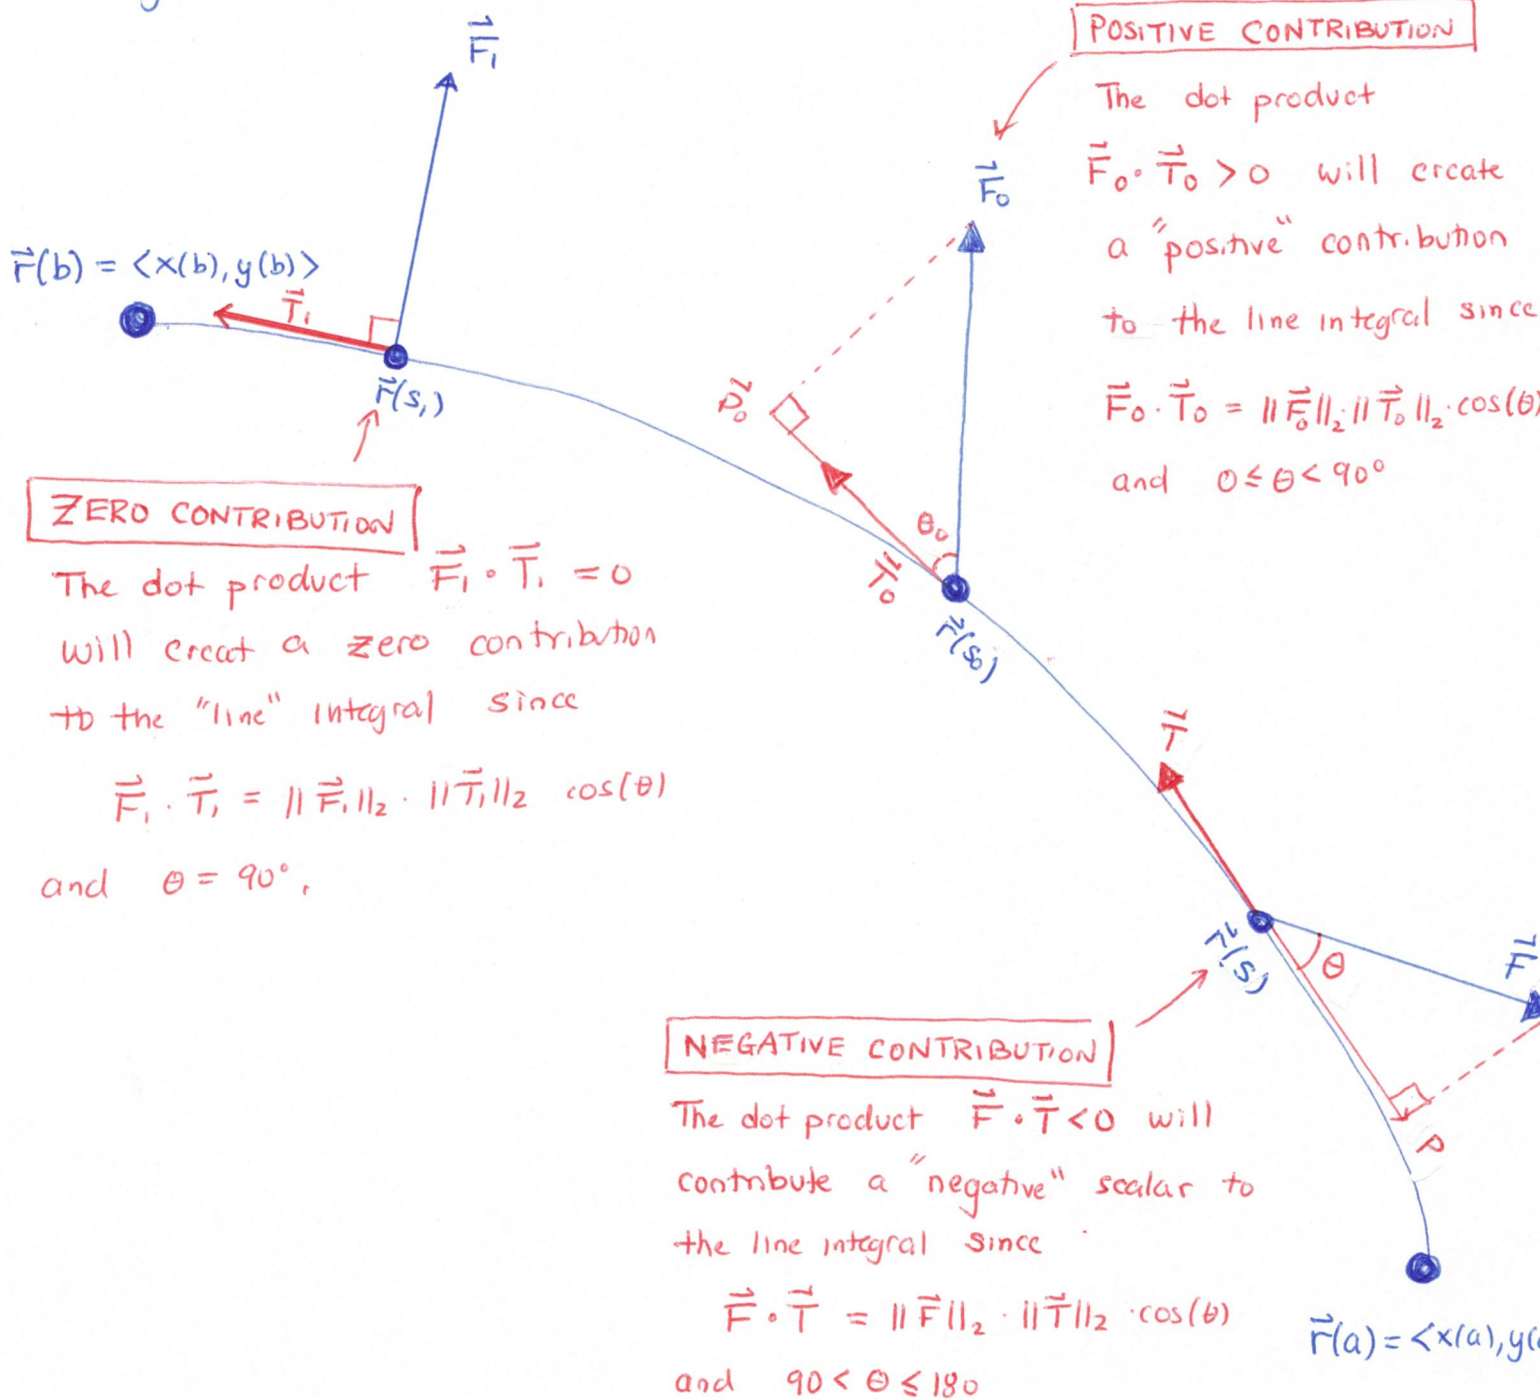 F⃗₁
POSITIVE CONTRIBUTION
The dot product
F⃗₀ · T⃗₀ > 0 will create
a "positive" contribution
to the line integral since
F⃗₀ · T⃗₀ = ||F⃗₀||₂ · ||T⃗₀||₂ · cos(θ)
and 0 ≤ θ < 90°
F⃗₀
r⃗(b) = <x(b), y(b)>
T⃗₁
r⃗(s₁)
p⃗₀
θ₀
T⃗₀
r⃗(s₀)
ZERO CONTRIBUTION
The dot product F⃗₁ · T⃗₁ = 0
will creat a zero contribution
to the "line" integral since
F⃗₁ · T⃗₁ = ||F⃗₁||₂ · ||T⃗₁||₂ cos(θ)
and θ = 90°.
T⃗
r⃗(s)
θ
F⃗
P
NEGATIVE CONTRIBUTION
The dot product F⃗ · T⃗ < 0 will
contribute a "negative" scalar to
the line integral since
F⃗ · T⃗ = ||F⃗||₂ · ||T⃗||₂ · cos(θ)
and 90 < θ ≤ 180
r⃗(a) = <x(a), y(